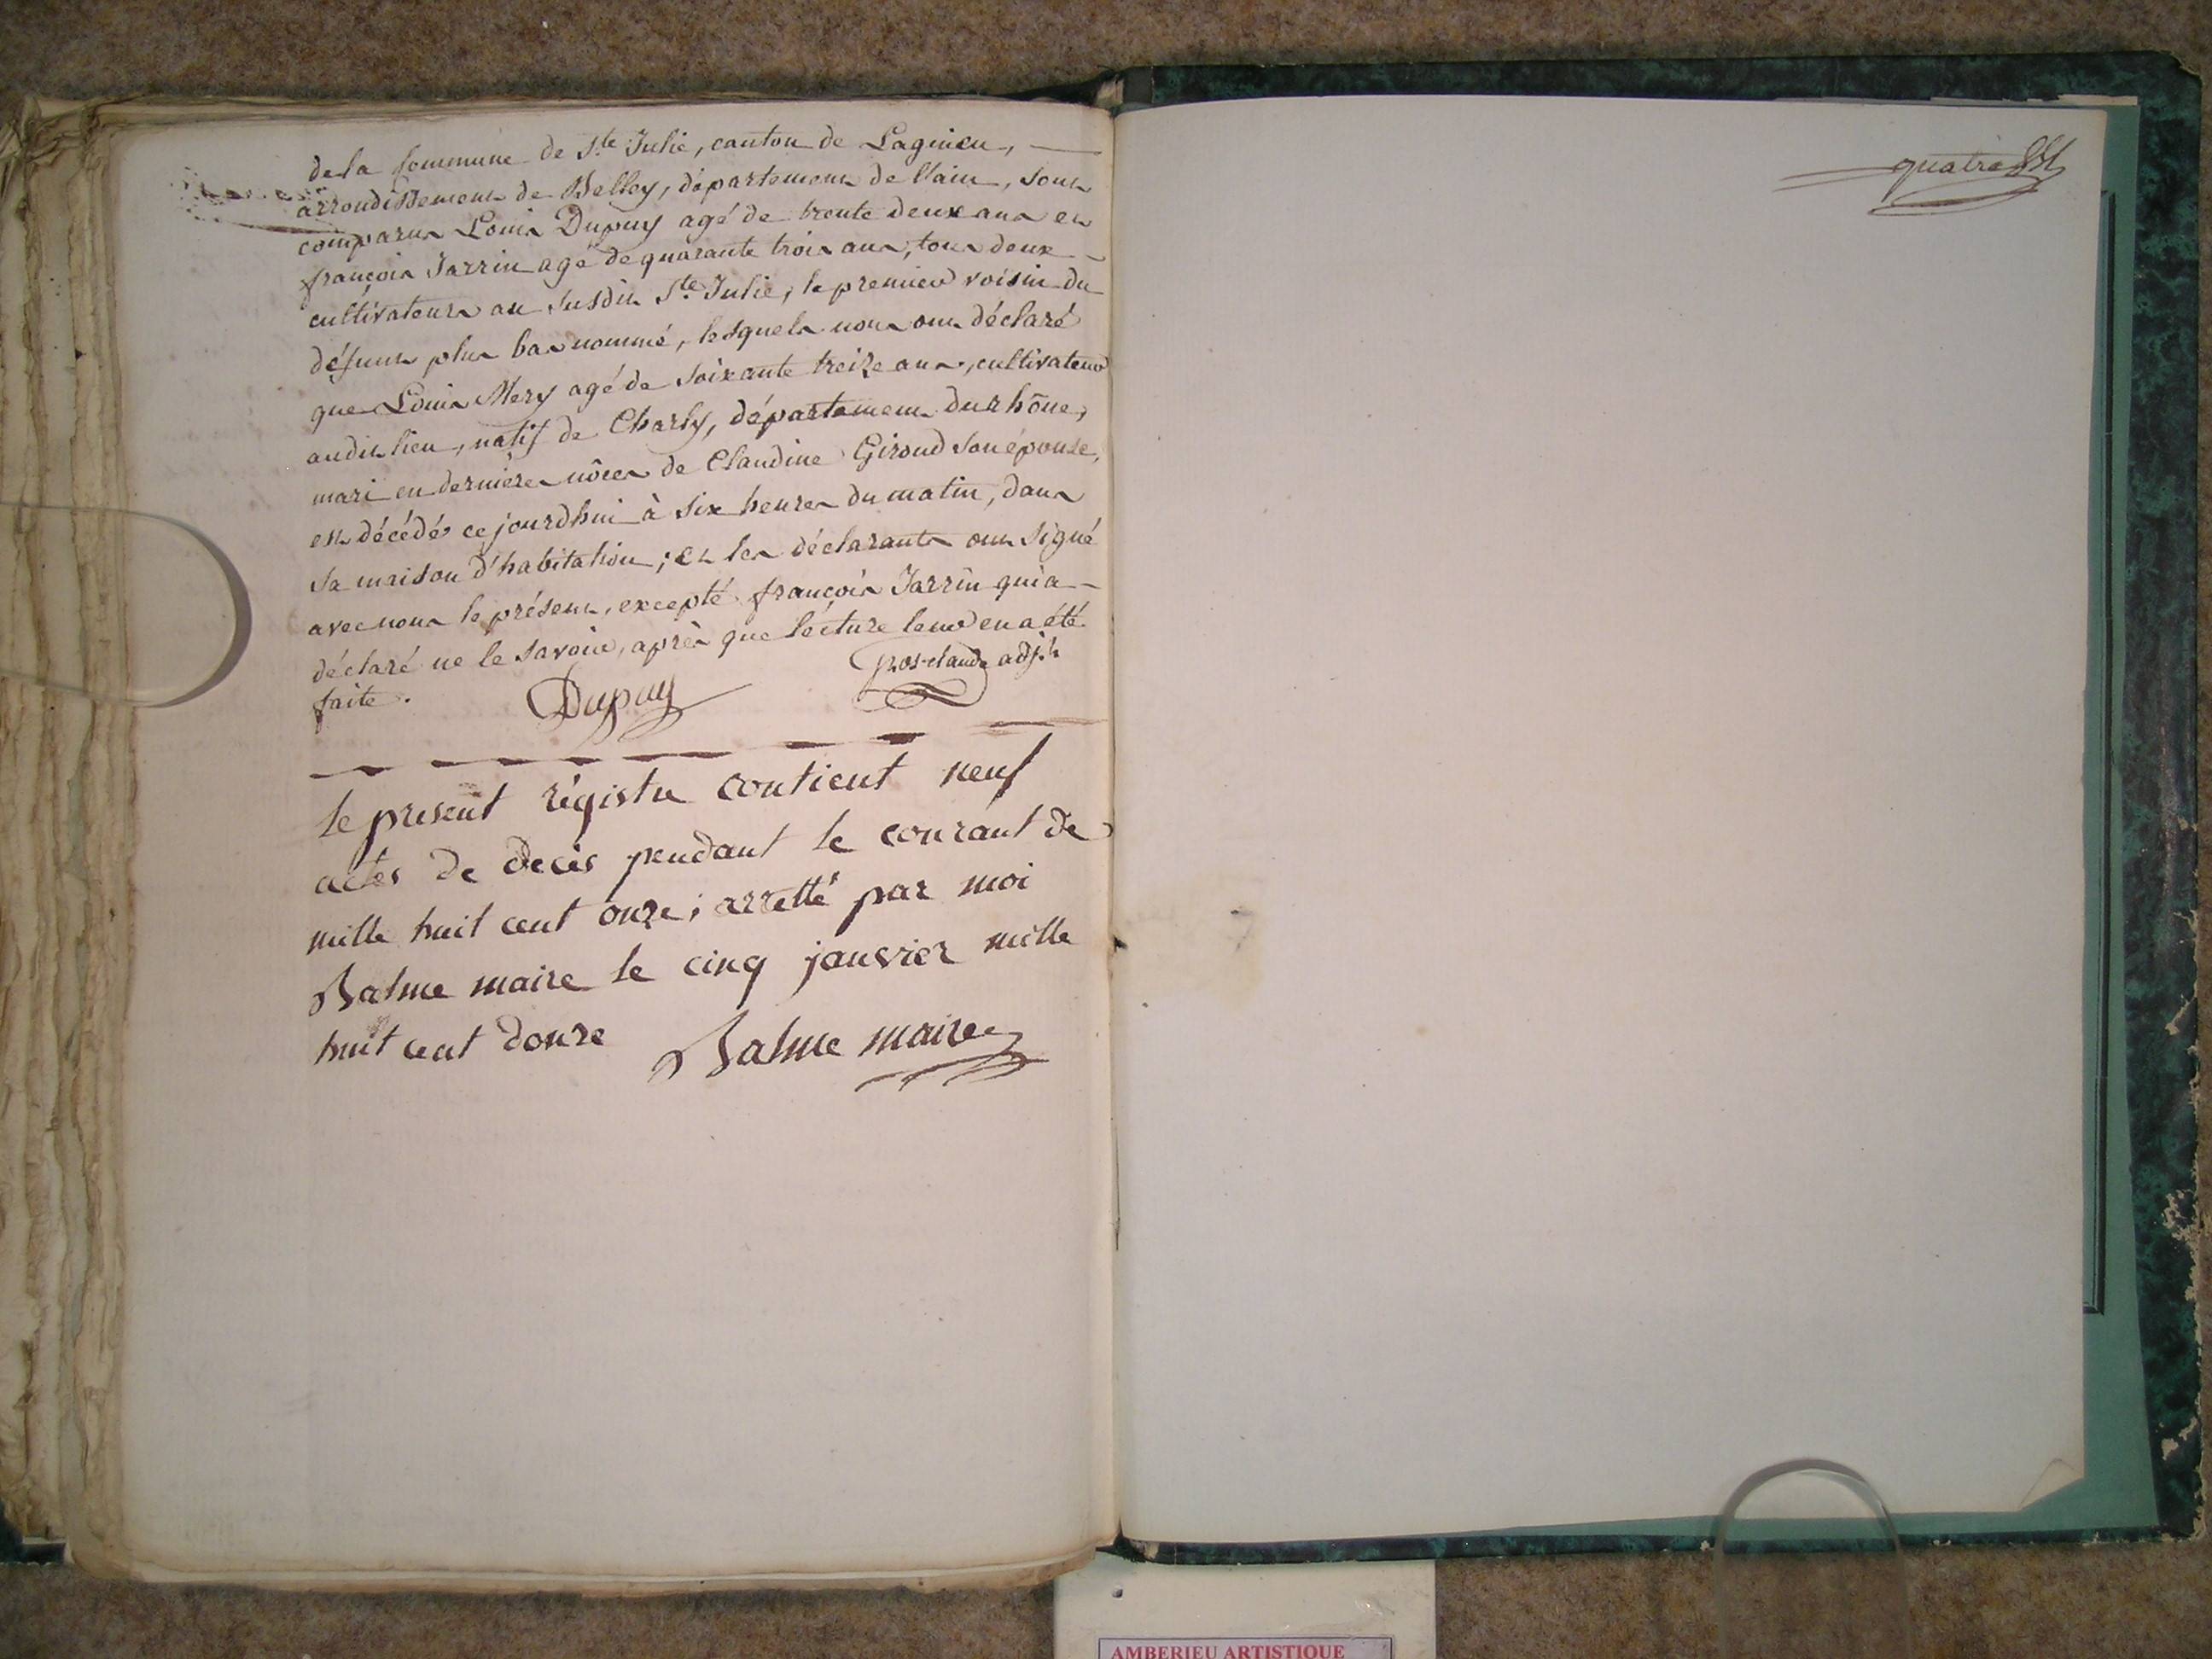 de la Commune de Ste Julie, canton de Lagnieu,
arrondissement de Belley, département de l'ain, sont
comparus Louis Dupuy agé de trente deux ans et
françois Jarrin agé de quarante trois ans, tous deux
cultivateurs au susdit Ste Julie, le premier voisin du
défunt plus bas nommé, lesquels nous ont déclaré
que Louis Mery agé de soixante treize ans, cultivateur
audit lieu, natif de Charly, département du rhône,
mari en dernières nôces de Claudine Giroud son épouse,
est décédé ce jourdhui à six heures du matin, dans
sa maison d'habitation; et les déclarants ont signé
avec nous le présent, excepté françois Jarrin qui a
déclaré ne le savoir, après que lecture leur en a été
faite.
Dupuy
adjt
le present régistre contient neuf
actes de decès pendant le courant de
mille huit cent onze; arretté par moi
Balme maire le cinq janvier mille
huit cent douze
Balme maire
quatre
AMBERIEU ARTISTIQUE